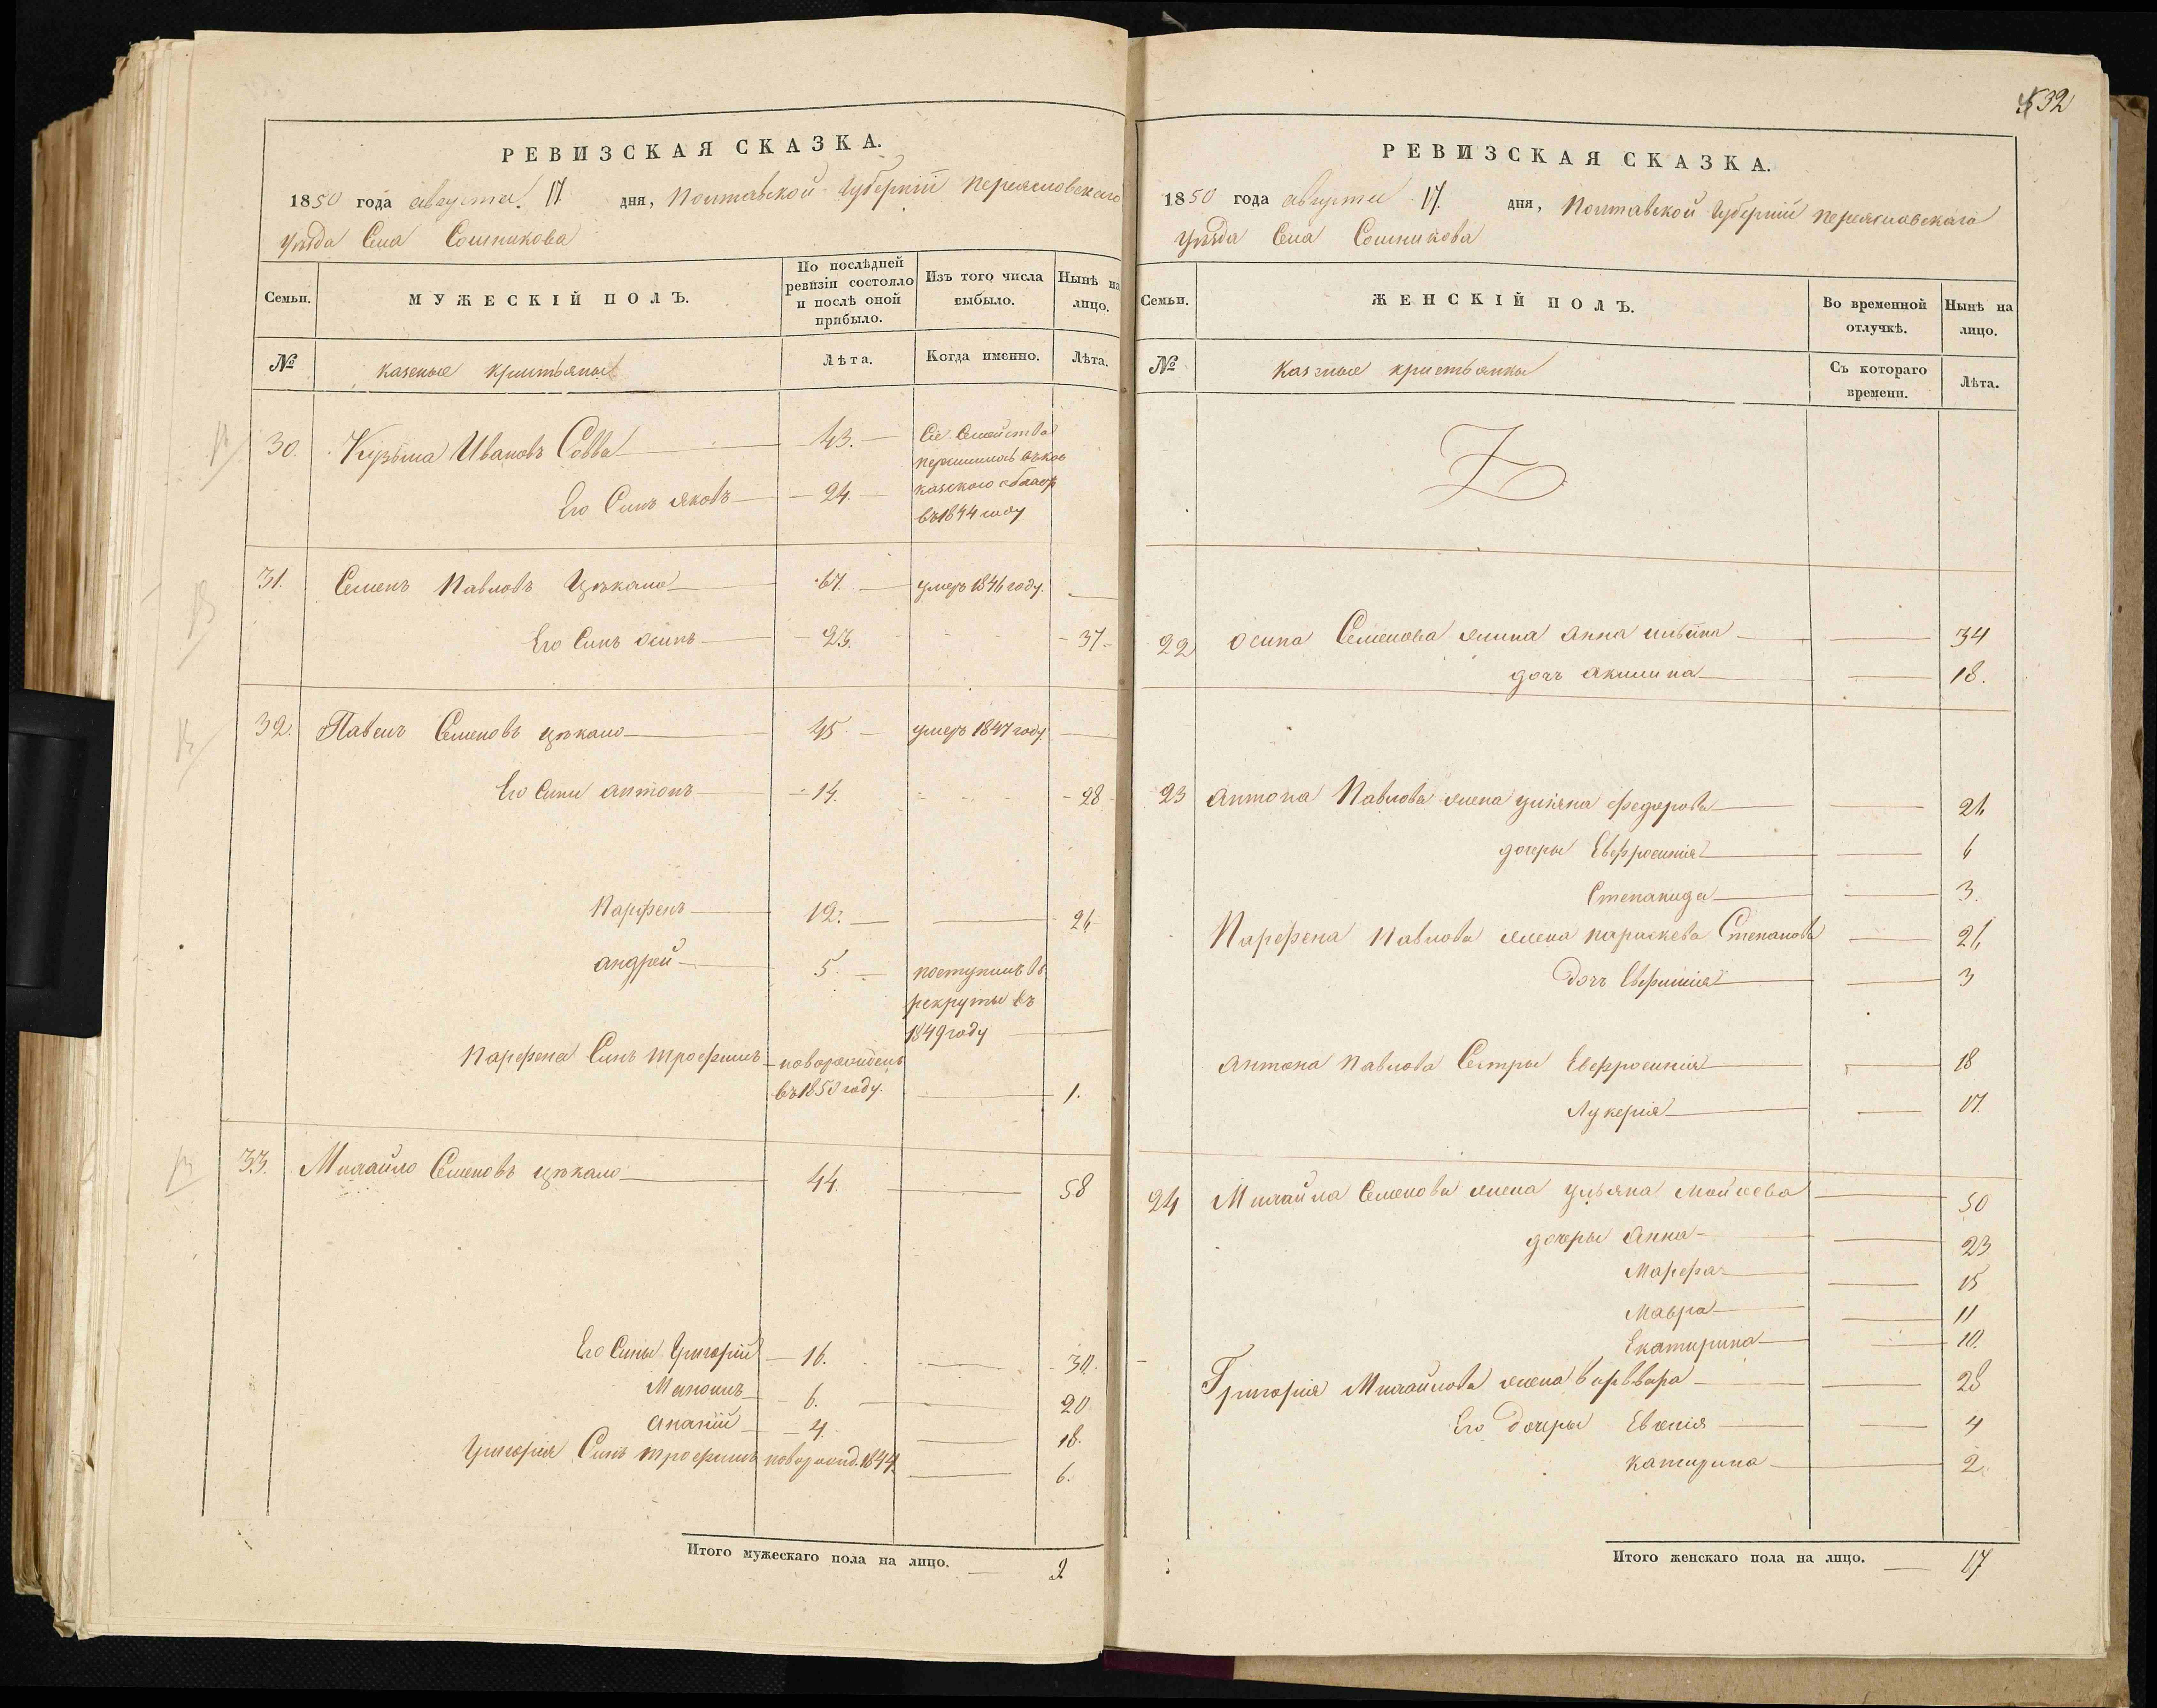 РЕВИЗСКАЯ СКАЗКА.
1850 года августа 17 дня, Полтавской Губерніи Переясловскаго
уѣзда Села Сошникова
Семьи. МУЖЕСКІЙ ПОЛЪ. По послѣдней ревизіи состояло и послѣ оной прибыло. Изъ того числа выбыло. Нынѣ на лицо.
№ казеные кристьяны Лѣта. Когда именно. Лѣта.
30. Кузьма Ивановъ Совва 43. Сіе Семейства
переишлось въ кав
Его Синъ яковъ 24. казскою област
въ 1844 году
31. Семенъ Павловъ Цѣкало 67. умеръ 1846 году.
Его Синъ осипъ 23. 37
32. Павелъ Семеновъ цѣкало 45 умеръ 1847 году
Его Сини антонъ 14. 28
Парфенъ 12. 26
андрей 5. поступилъ въ
рекруты въ
1849 году
Парфена Синъ трофимъ новорожденъ
въ 1850 году. 1.
33. Михайло Семеновъ цѣкало 44. 58
Его Сины Григорій 16. 30.
6. 20
ананій 4. 18.
Григорія Синъ трофимъ новорожд. 1844 6.
Итого мужескаго пола на лицо. 9
532
РЕВИЗСКАЯ СКАЗКА.
1850 года августа 17. дня, Полтавской Губерніи переясловскаго
уѣзда Села Сошникова
Семьи. ЖЕНСКІЙ ПОЛЪ. Во временной отлучкѣ. Нынѣ на лицо.
№ казеные кристьянкы Съ котораго времени. Лѣта.
22 осипа Семенова жина анна 34
дочъ акилина 18.
23 антона Павлова жена улияна федорова 26
дочеры Евфросинія 6
Степанида 3.
Парфена Павлова жена параскева Степанова 26
Дочъ Евфимія 3
антона Павлова Сестры Евфросинія 18
Лукерія 17.
24 Михайла Семенова жена ульяна мойсѣева 50
дочеры анна 23
Марфа 15
Мавра 11
Екатирина 10.
Григорія Михайлова жена варввара 28
Его дочеры Евгенія 4
катирина 2
Итого женскаго пола на лицо. 17